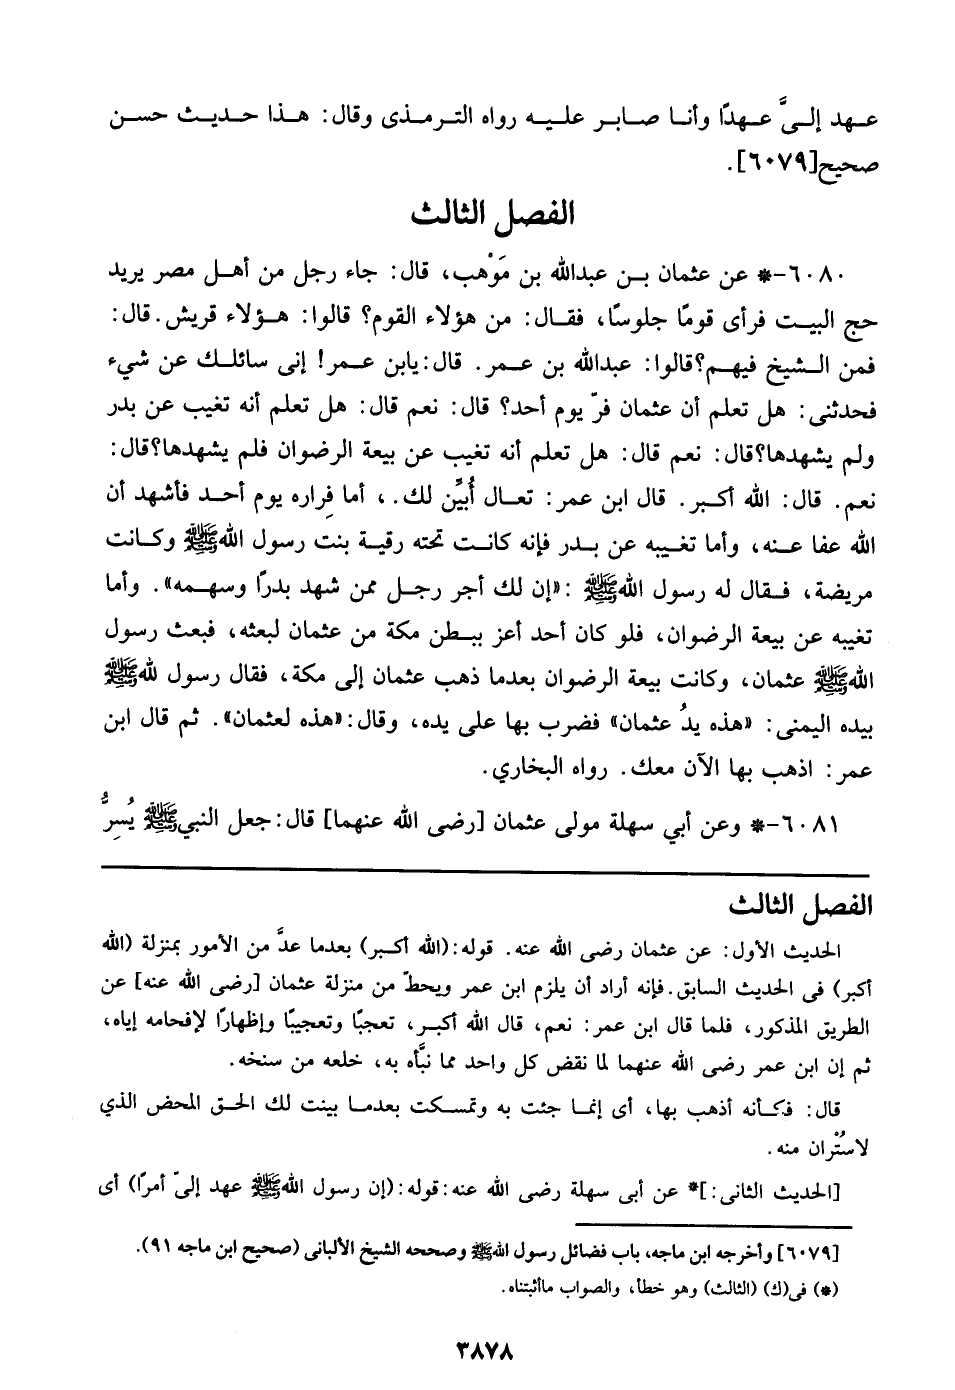 عـهد إلـىَّ عـهدًا وأنـا صـابـر عليـه رواه التـرمـذى وقال: هـذا حـديـث حسـن
صحيح[٦٠٧٩].
الفصل الثالث
٦٠٨٠-* عن عثمان بـن عبدالله بن مَوْهب، قال: جاء رجل من أهـل مصر يريد
حج البيـت فرأى قومًا جلوسًا، فقـال: من هؤلاء القوم؟ قالوا: هـؤلاء قريش. قال:
فمن الـشيخ فيهـم؟قالوا: عبدالله بن عـمر. قال:يابن عـمر! إنى سائلـك عن شيء
فحدثنى: هل تعلم أن عثمان فرّ يوم أحد؟ قال: نعم قال: هل تعلم أنه تغيب عن بدر
ولم يشهدها؟قال: نعم قال: هل تعلم أنه تغيب عن بيعة الرضوان فلم يشهدها؟قال:
نعم. قال: الله أكبر. قال ابن عمر: تعـال أُبيِّن لك.، أما فِراره يوم أحـد فأشهد أن
الله عفا عـنه، وأما تغيبه عن بـدر فإنه كانـت تحته رقيـة بنت رسول اللهﷺ وكـانت
مريضة، فـقال له رسول اللهﷺ :«إن لك أجر رجـل ممن شهد بدرًا وسهـمه». وأما
تغيبه عن بيعة الرضوان، فلو كان أحد أعز ببـطن مكة من عثمان لبعثه، فبعث رسول
اللهﷺ عثمان، وكانت بيعة الرضوان بعدما ذهب عثمان إلى مكة، فقال رسول للهﷺ
بيده اليمنى: «هذه يدُ عثمان» فضرب بها على يده، وقال:«هذه لعثمان». ثم قال ابن
عمر: اذهب بها الآن معك. رواه البخاري.
٦٠٨١-* وعن أبي سهلة مولى عثمان [رضى الله عنهما] قال:جعل النبيﷺ يُسِرُّ
الفصل الثالث
الحديث الأول: عن عثمان رضى الله عنه. قوله:(الله أكبر) بعدما عدَّ من الأمور بمنزلة (الله
أكبر) فى الحديث السابق.فإنه أراد أن يلزم ابن عمر ويحطّ من منزلة عثمان [رضى الله عنه] عن
الطريق المذكور، فلما قال ابن عمر: نعم، قال الله أكبر، تعجبًا وتعجيبًا وإظهارًا لإفحامه إياه،
ثم إن ابن عمر رضى الله عنهما لما نقض كل واحد مما نبَّأه به، خلعه من سنخه.
قال: فكـأنه أذهب بها، أى إنمـا جئت به وتمسكت بعدمـا بينت لك الحق المحض الذي
لاستُران منه.
[الحديث الثانى:]* عن أبى سهلة رضى الله عنه:قوله:(إن رسول اللهﷺ عهد إلىّ أمرًا) أى
[٦٠٧٩] وأخرجه ابن ماجه، باب فضائل رسول اللهﷺ وصححه الشيخ الألبانى (صحيح ابن ماجه ٩١).
(*) فى(ك) (الثالث) وهو خطأ، والصواب ماأثبتناه.
٣٨٧٨